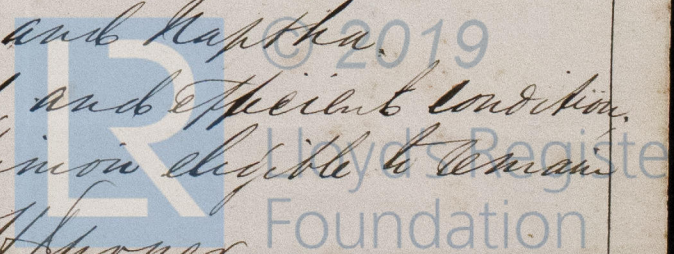 and Naptha.
and efficient condition,
inion eligible to remain
© 2019
LR
Lloyd's Registe
Foundation